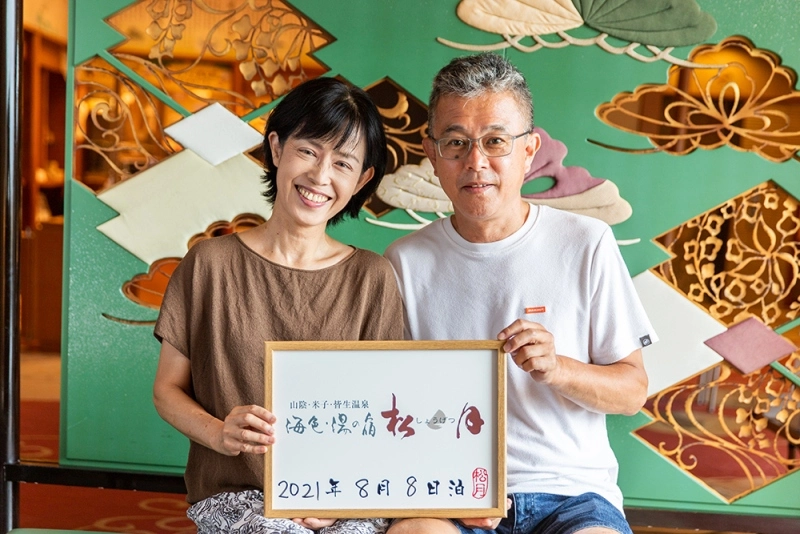 山陰・米子・皆生温泉
海色・湯の宿 松月
しょうげつ
2021年 8月 8日泊
松月